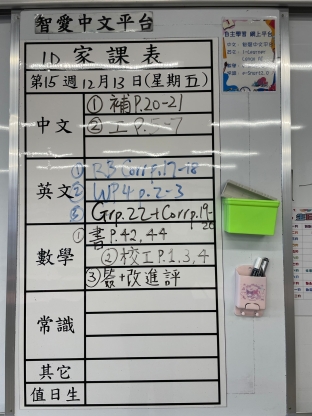 智愛中文平台
1D 家課表
第15週12月13日(星期五)
中文
①補P.20-21
②工P.5-7
英文
①R3 Corr P.17-18
②WP4 p.2-3
③Grp.22+Corr p.19-20
數學
①書P.42,44
②校工P.1,3,4
③簽+改進評
常識
其它
值日生
自主學習 網上平台